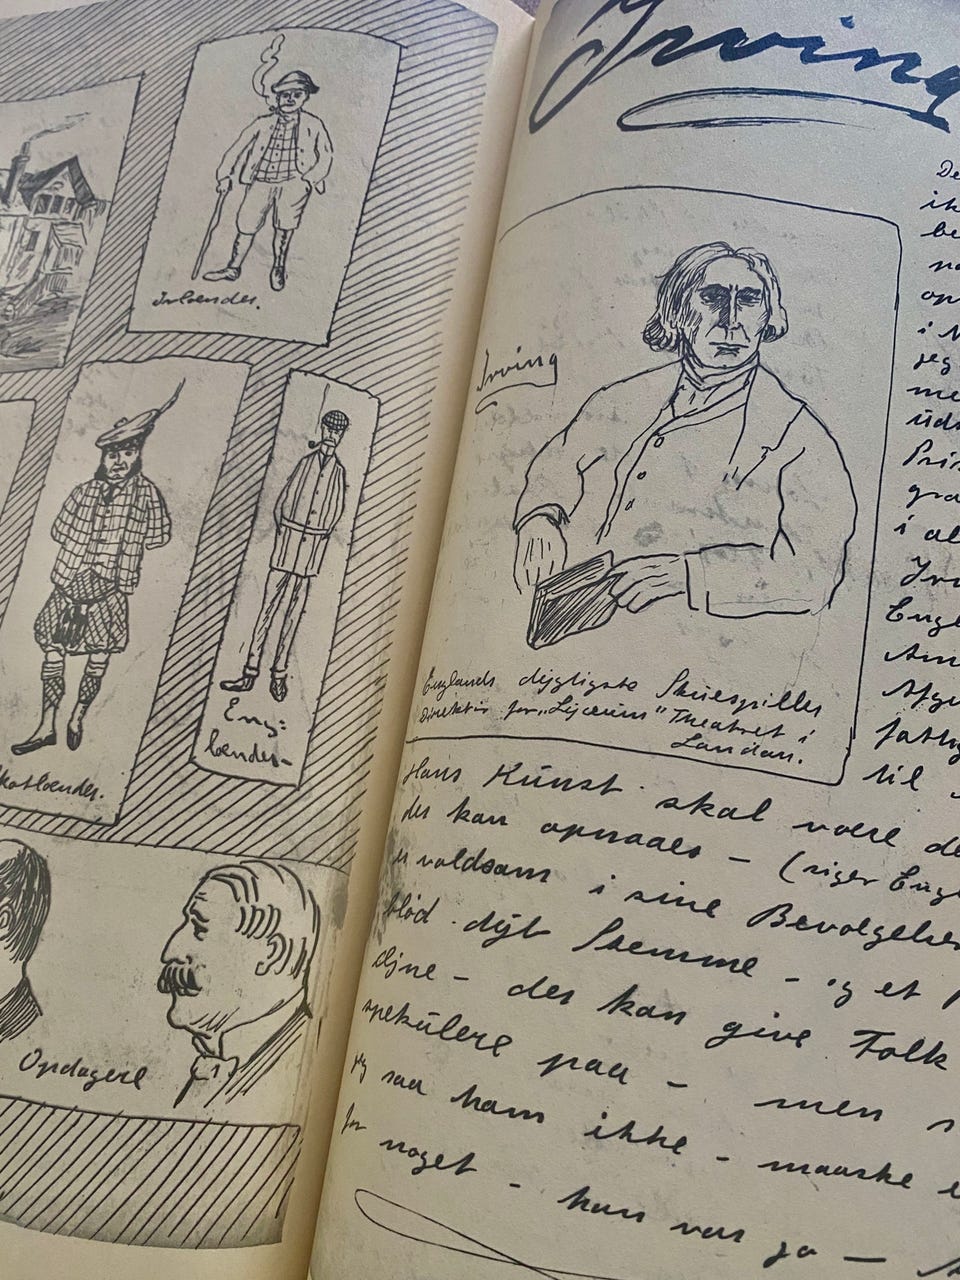 Irlænder.
Skotlænder.
Eng=
lænder-
Opdagere
Irving
Irving
Englands dygtigste Skuespiller
Direktør for „Lyceum" Theatret i
London.
De
ik
be
op
i
jeg
me
uds
Pri
gra
i al
Irv
Eng
Am
Afgu
til
Hans Kunst skal være de
der kan opnaaes - (siger Engl
er voldsom i sine Bevægelser
blød dyb Stemme - og et
Øjne - der kan give Folk
spekulere paa - men
jeg saa ham ikke - maaske
for noget - han var jo -